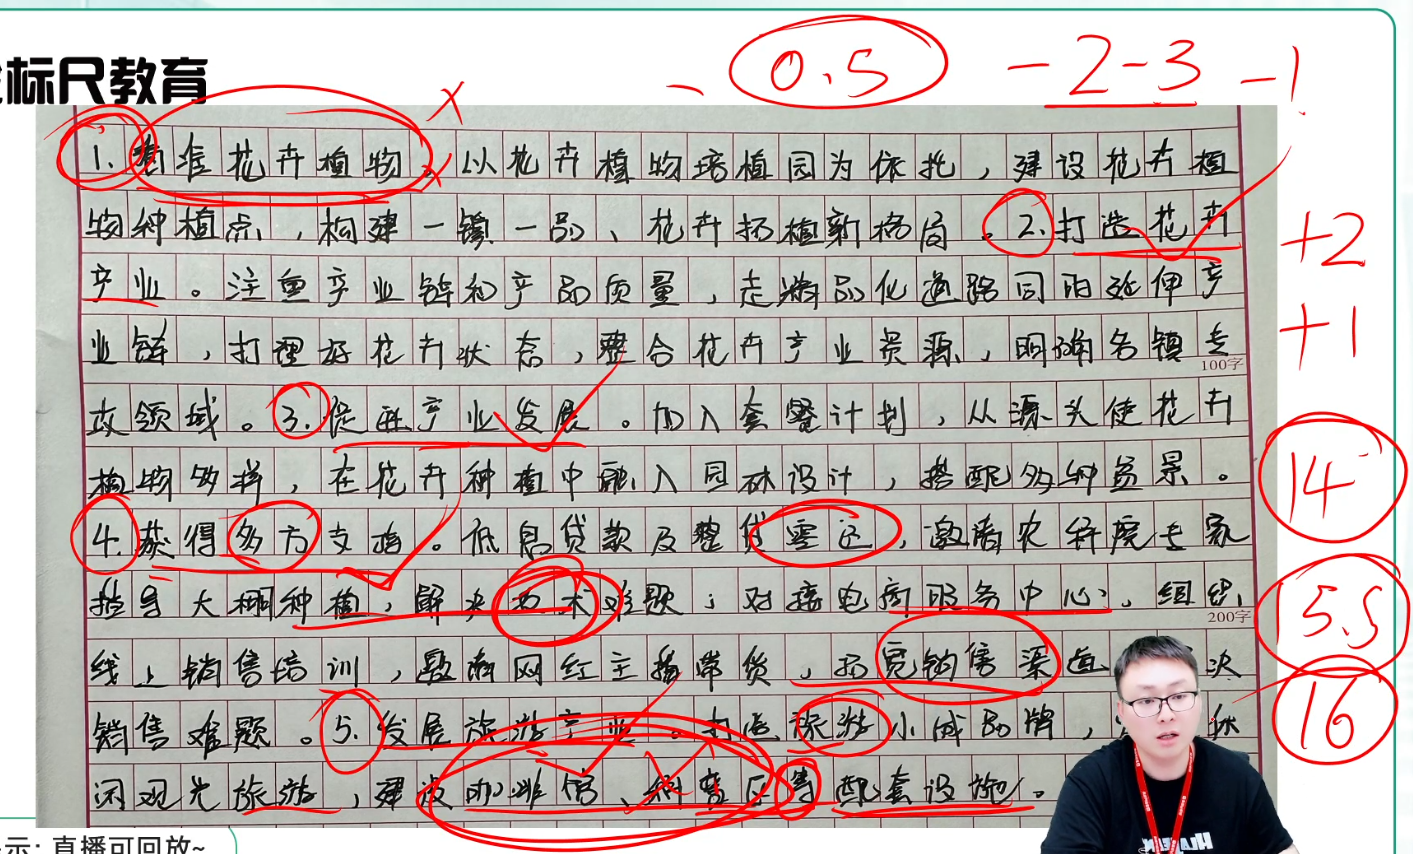 标尺教育
0.5 -2-3 -1
1.着准花卉植物。以花卉植物培植园为依托，建设花卉植
物种植点，构建一镇一品、花卉拓植新格局。2.打造花卉
产业。注重产业链和产品质量，走精品化道路同时延伸产
业链，打理好花卉状态，整合花卉产业资源，明确各镇专
100字
攻领域。3.促进产业发展。加入套餐计划，从源头使花卉
植物多样，在花卉种植中融入园林设计，搭配多种盆景。
4.获得多方支持。低息贷款及整贷零还，邀请农科院专家
指导大棚种植，解决技术难题；对接电商服务中心，组织
200字
线上销售培训，邀请网红主播带货，拓宽销售渠道 决
销售难题。5.发展旅游产业。打造旅游小城品牌， 休
闲观光旅游，建设咖啡馆、 区等配套设施。
+2
+1
14
15.5
16
示：直播可回放~